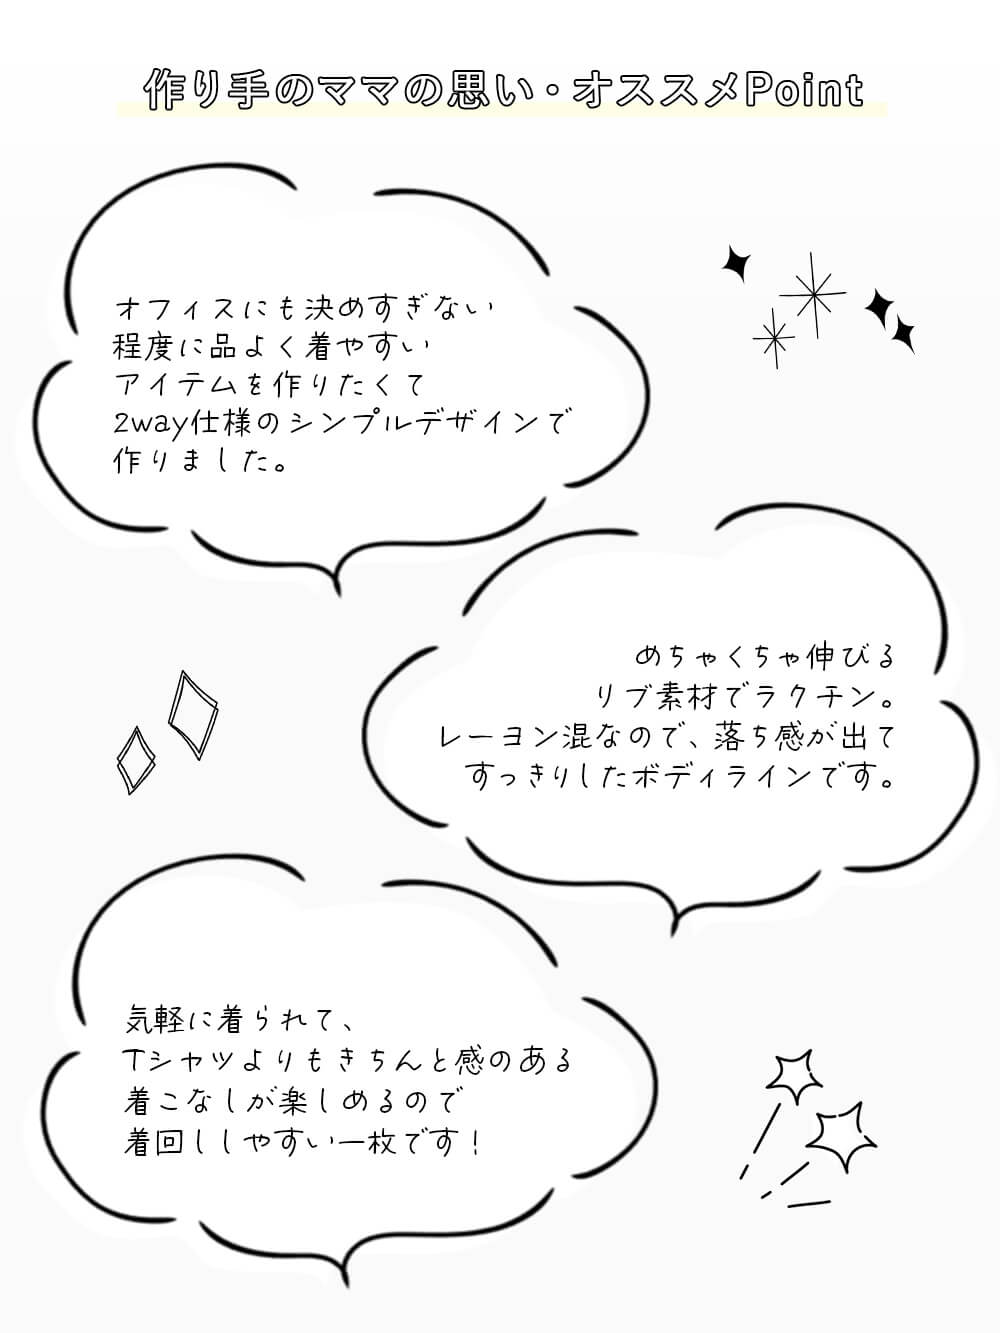 作り手のママの思い・オススメPoint
オフィスにも決めすぎない
程度に品よく着やすい
アイテムを作りたくて
2way仕様のシンプルデザインで
作りました。
めちゃくちゃ伸びる
リブ素材でラクチン。
レーヨン混なので、落ち感が出て
すっきりしたボディラインです。
気軽に着られて、
Tシャツよりもきちんと感のある
着こなしが楽しめるので
着回ししやすい一枚です！